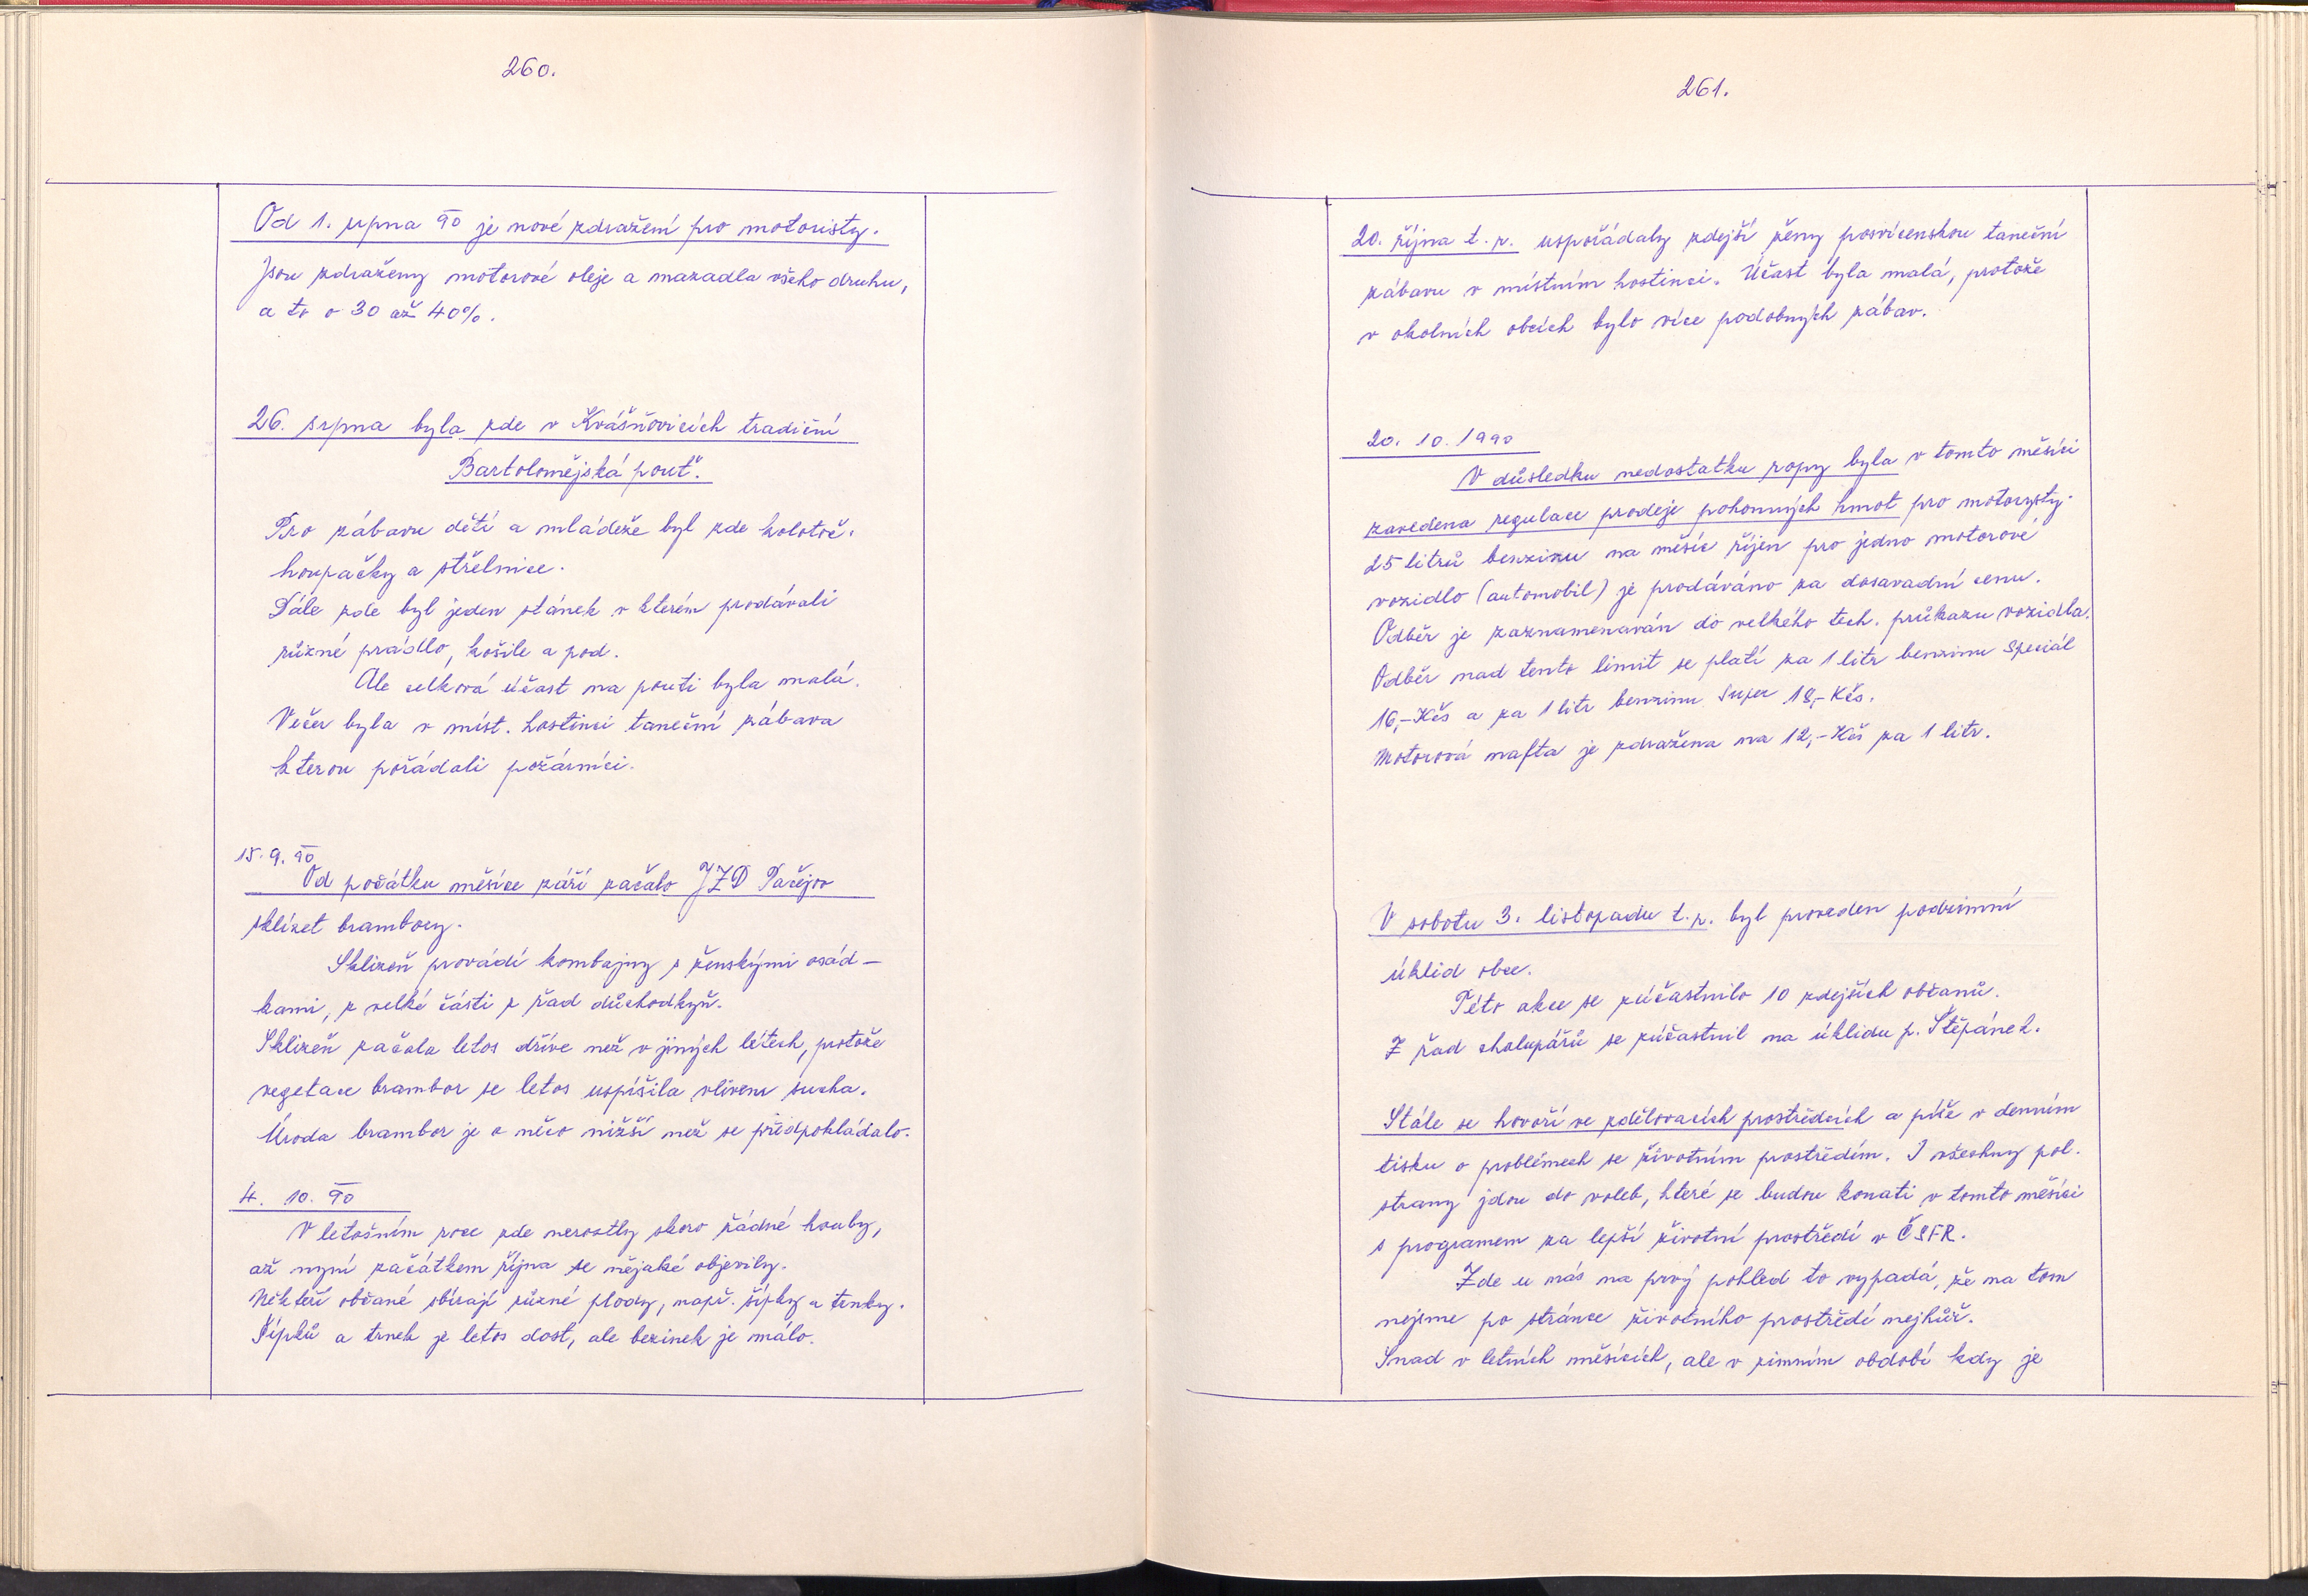 260.
Od 1. srpna 90 je nové zdražení pro motoristy.
Jsou zdraženy motorové oleje a mazadla všeho druhu,
a to o 30 až 40%.
26. srpna byla zde v Kvášňovicích tradiční
Bartolomějská pouť.
Pro zábavu dětí a mládeže byl zde kolotoč,
houpačky a střelnice.
Dále zde byl jeden stánek v kterém prodávali
různé prádlo, košile a pod.
Ale celková účast na pouti byla malá.
Večer byla v míst. hostinci taneční zábava
kterou pořádali požárníci.
15. 9. 90
Od počátku měsíce září začalo JZD Pačejov
sklízet brambory.
Sklizeň provádí kombajny s ženskými osád-
kami, z velké části z řad důchodkyň.
Sklizeň začala letos dříve než v jiných létech, protože
vegetace brambor se letos uspíšila vlivem sucha.
Úroda brambor je o něco nižší než se předpokládalo.
4. 10. 90
V letošním roce zde nerostly skoro žádné houby,
až nyní začátkem října se nějaké objevily.
Někteří občané sbírají různé plody, např. šípky a trnky.
Šípků a trnek je letos dost, ale bezinek je málo.
261.
20. října t. r. uspořádaly zdejší ženy posvícenskou taneční
zábavu v místním hostinci. Účast byla malá, protože
v okolních obcích bylo více podobných zábav.
20. 10. 1990
V důsledku nedostatku ropy byla v tomto měsíci
zavedena regulace prodeje pohonných hmot pro motoristy.
25 litrů benzinu na měsíc říjen pro jedno motorové
vozidlo (automobil) je prodáváno za dosavadní cenu.
Odběr je zaznamenáván do velkého tech. průkazu vozidla.
Odběr nad tento limit se platí za 1 litr benzinu Speciál
16,- Kčs a za 1 litr benzinu Super 18,- Kčs.
Motorová nafta je zdražena na 12,- Kčs za 1 litr.
V sobotu 3. listopadu t. r. byl proveden podzimní
úklid obce.
Této akce se zúčastnilo 10 zdejších občanů.
Z řad chalupářů se zúčastnil na úklidu p. Štěpánek.
Stále se hovoří ve zdělovacích prostředcích a píše v denním
tisku o problémech se životním prostředím. I všechny pol.
strany jdou do voleb, které se budou konati v tomto měsíci
s programem za lepší životní prostředí v ČSFR.
Zde u nás na prvý pohled to vypadá, že na tom
nejsme po stránce životního prostředí nejhůř.
Snad v letních měsících, ale v zimním období kdy je